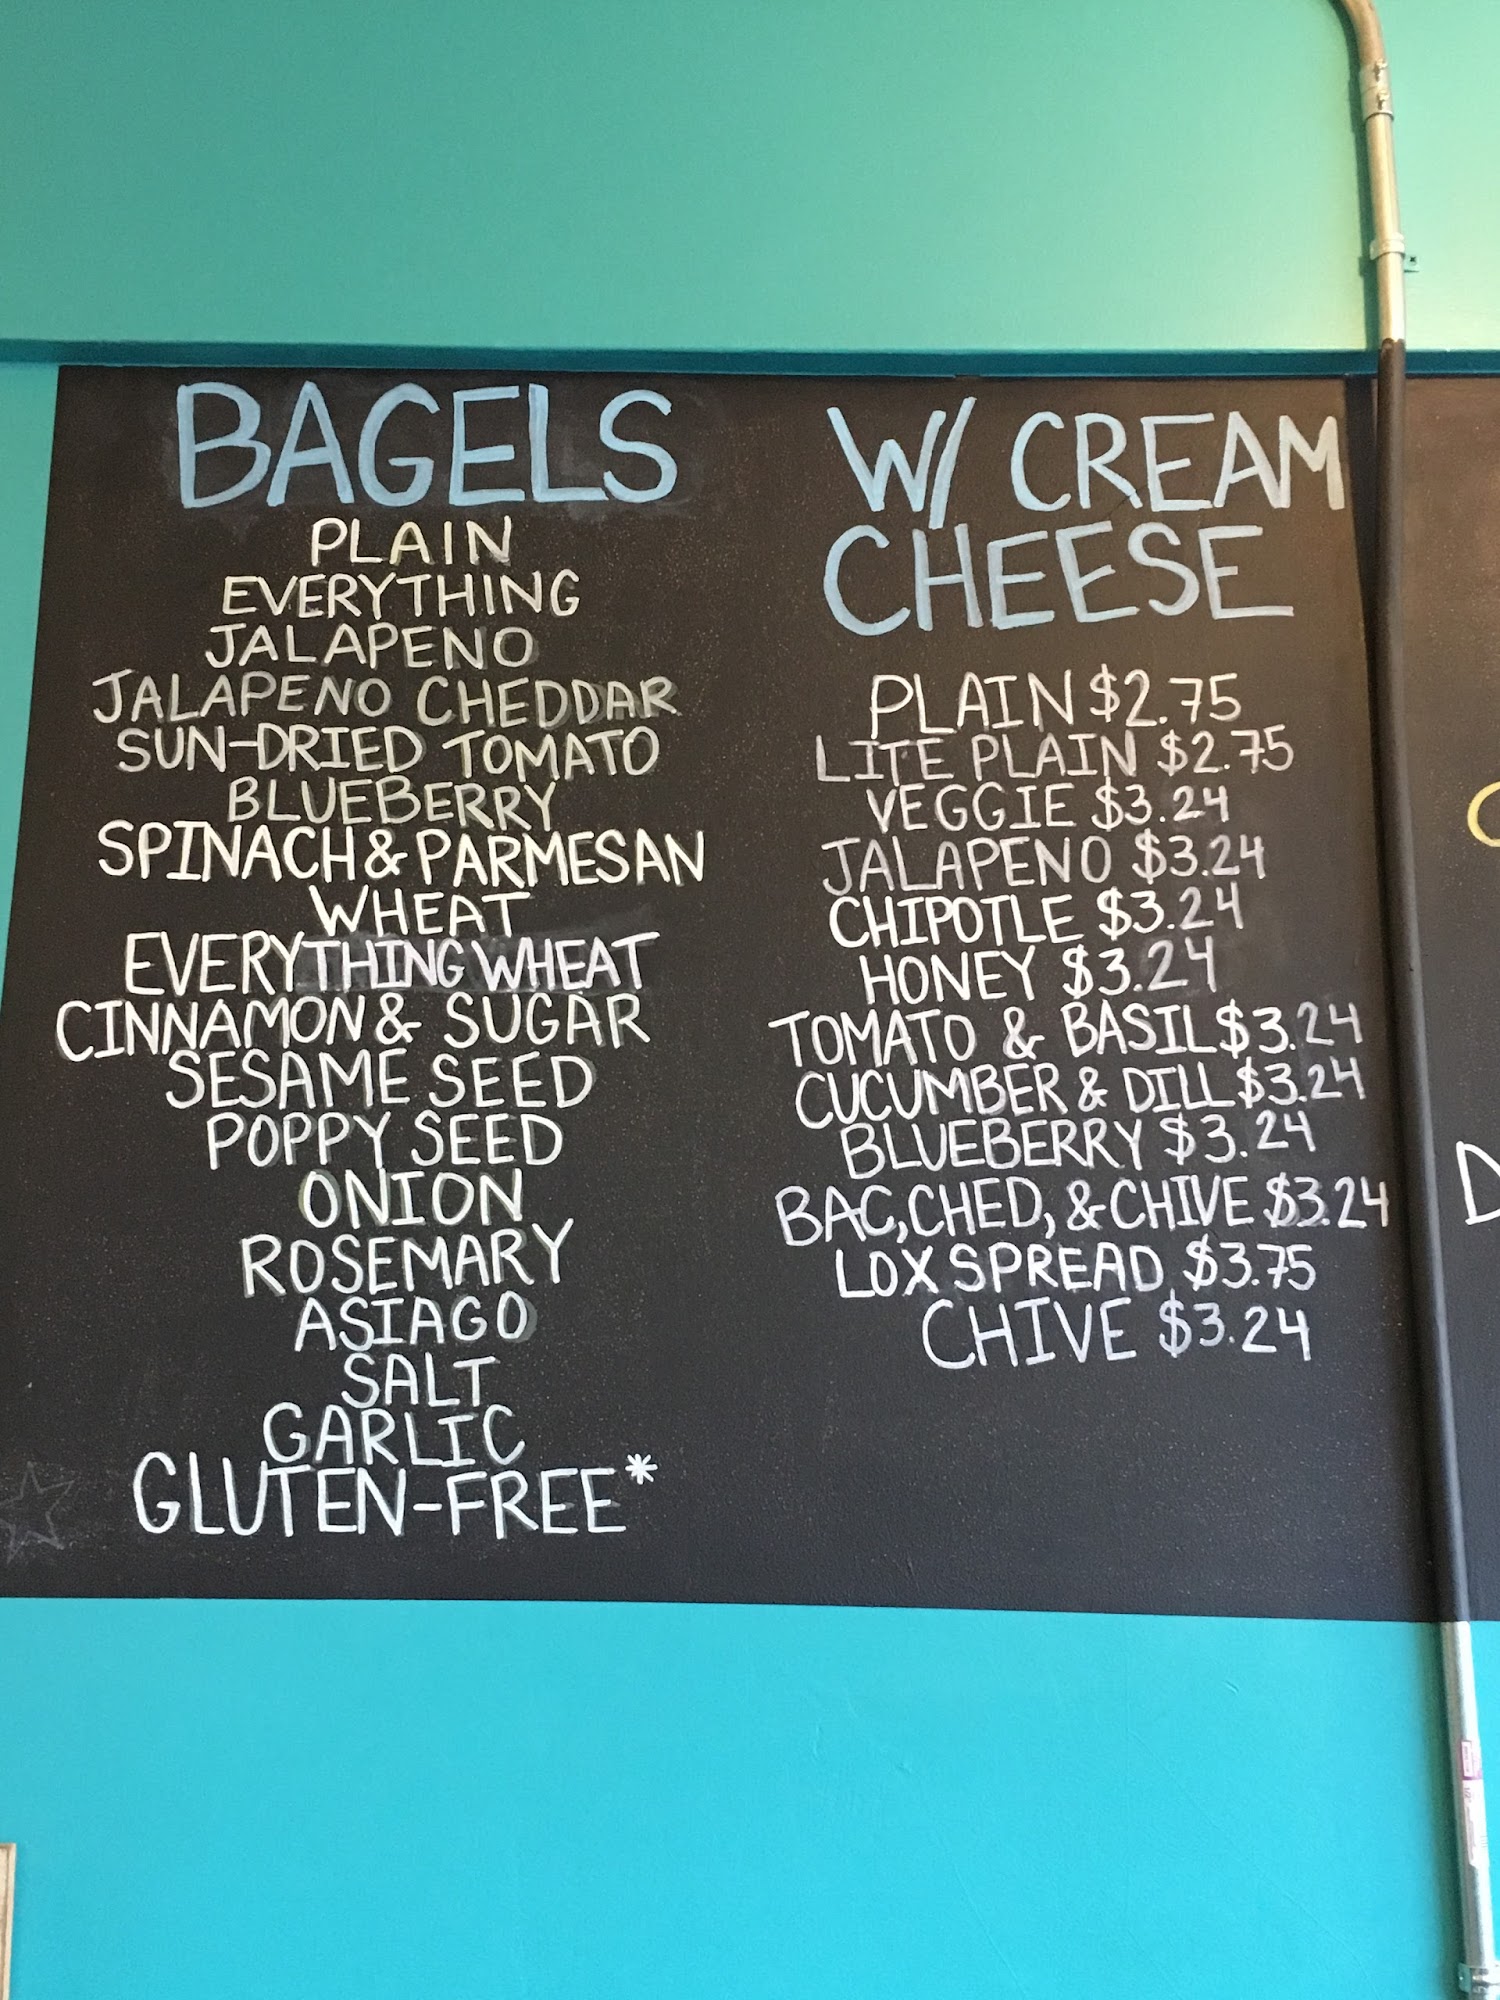 BAGELS
PLAIN
EVERYTHING
JALAPENO
JALAPENO CHEDDAR
SUN-DRIED TOMATO
BLUEBERRY
SPINACH & PARMESAN
WHEAT
EVERYTHING WHEAT
CINNAMON & SUGAR
SESAME SEED
POPPY SEED
ONION
ROSEMARY
ASIAGO
SALT
GARLIC
GLUTEN-FREE*
W/ CREAM
CHEESE
PLAIN $2.75
LITE PLAIN $2.75
VEGGIE $3.24
JALAPENO $3.24
CHIPOTLE $3.24
HONEY $3.24
TOMATO & BASIL $3.24
CUCUMBER & DILL $3.24
BLUEBERRY $3.24
BAC, CHED, & CHIVE $3.24
LOX SPREAD $3.75
CHIVE $3.24